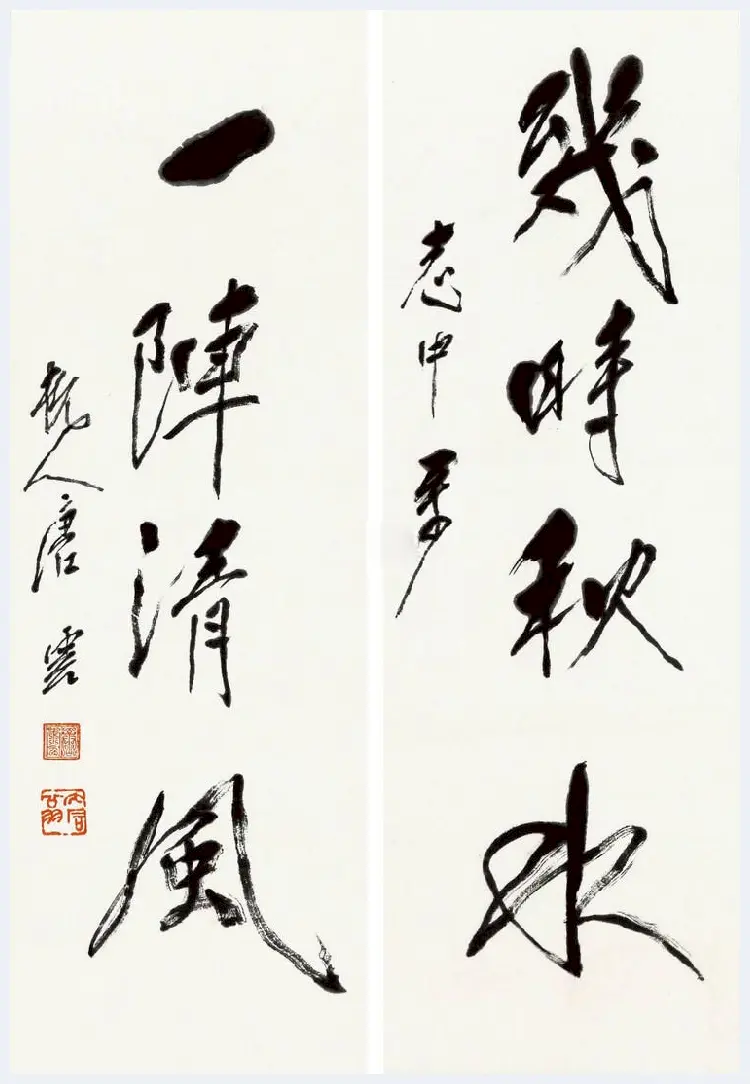 幾時秋水
申
一陣清風
杭人唐雲